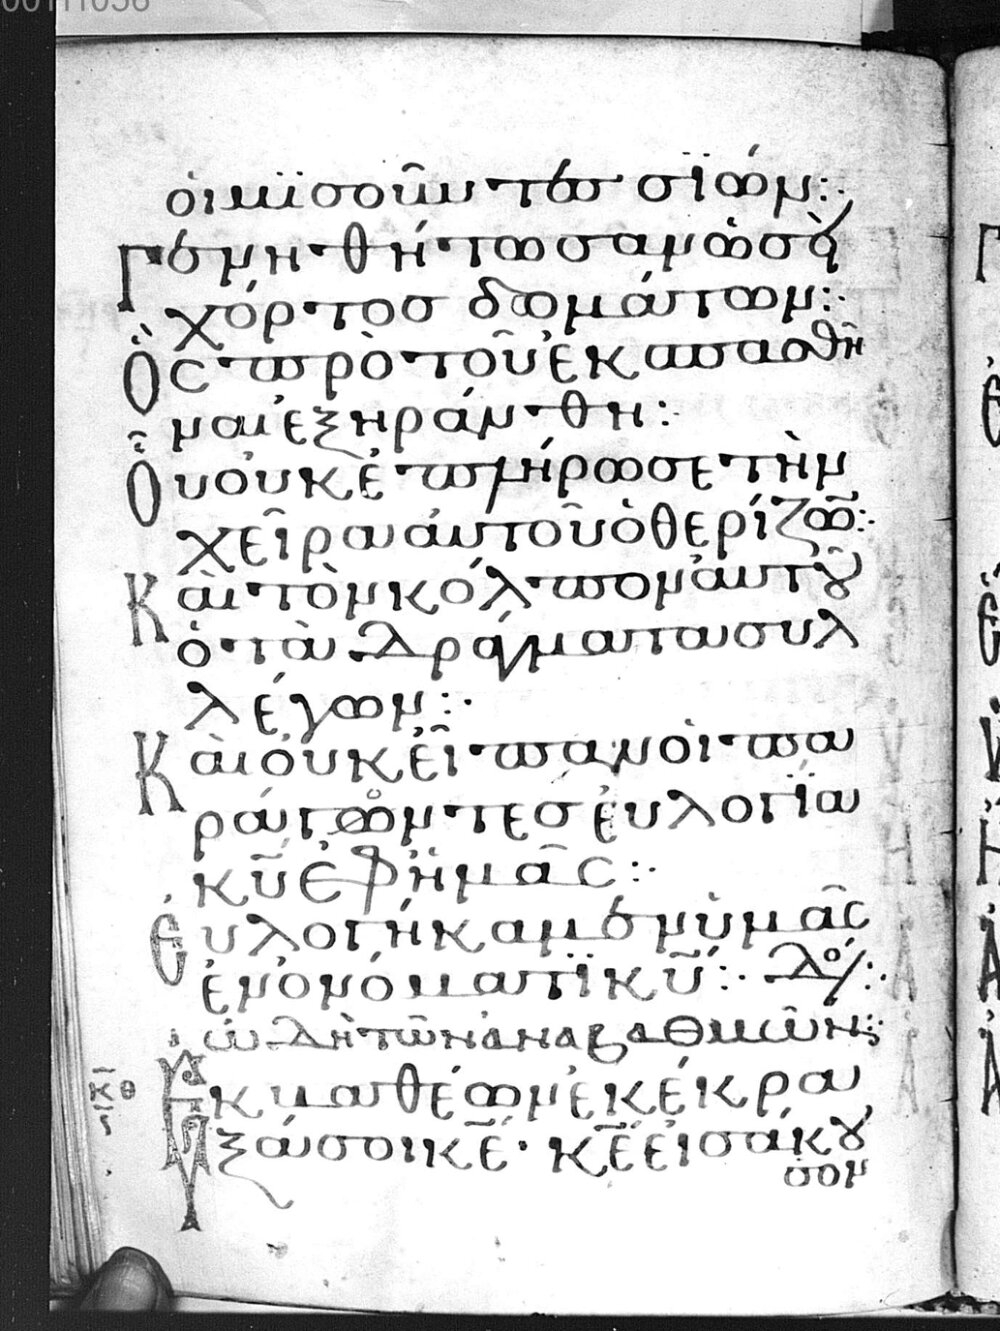 οἱ μϊσοῦντες σϊών:·
Γενηθήτωσαν ὡσεὶ
χόρτος δωμάτων:·
Ὃς πρὸ τοῦ ἐκσπασθῆ
ναι ἐξηράνθη:
Οὗ οὐκ ἐπλήρωσε τὴν
χεῖρα αὐτοῦ ὁ θερίζω̅:·
Καὶ τὸν κόλπον αὐτοῦ
ὁ τὰ δράγματα συλ
λέγων:·
Καὶ οὐκ εἶπαν οἱ πα
ράγοντες εὐλογία
κῡ ἐφ ἡμᾶς:·
Εὐλογήκαμεν ὑμᾶς
ἐν ὀνόματϊ κῡ:· δό:·
ὠδὴ τῶν ἀναβαθμῶν:·
κθ Ἐκ βαθέων ἐκέκρα
ξά σοι κε̅· κε̅ εἰσάκου
σον